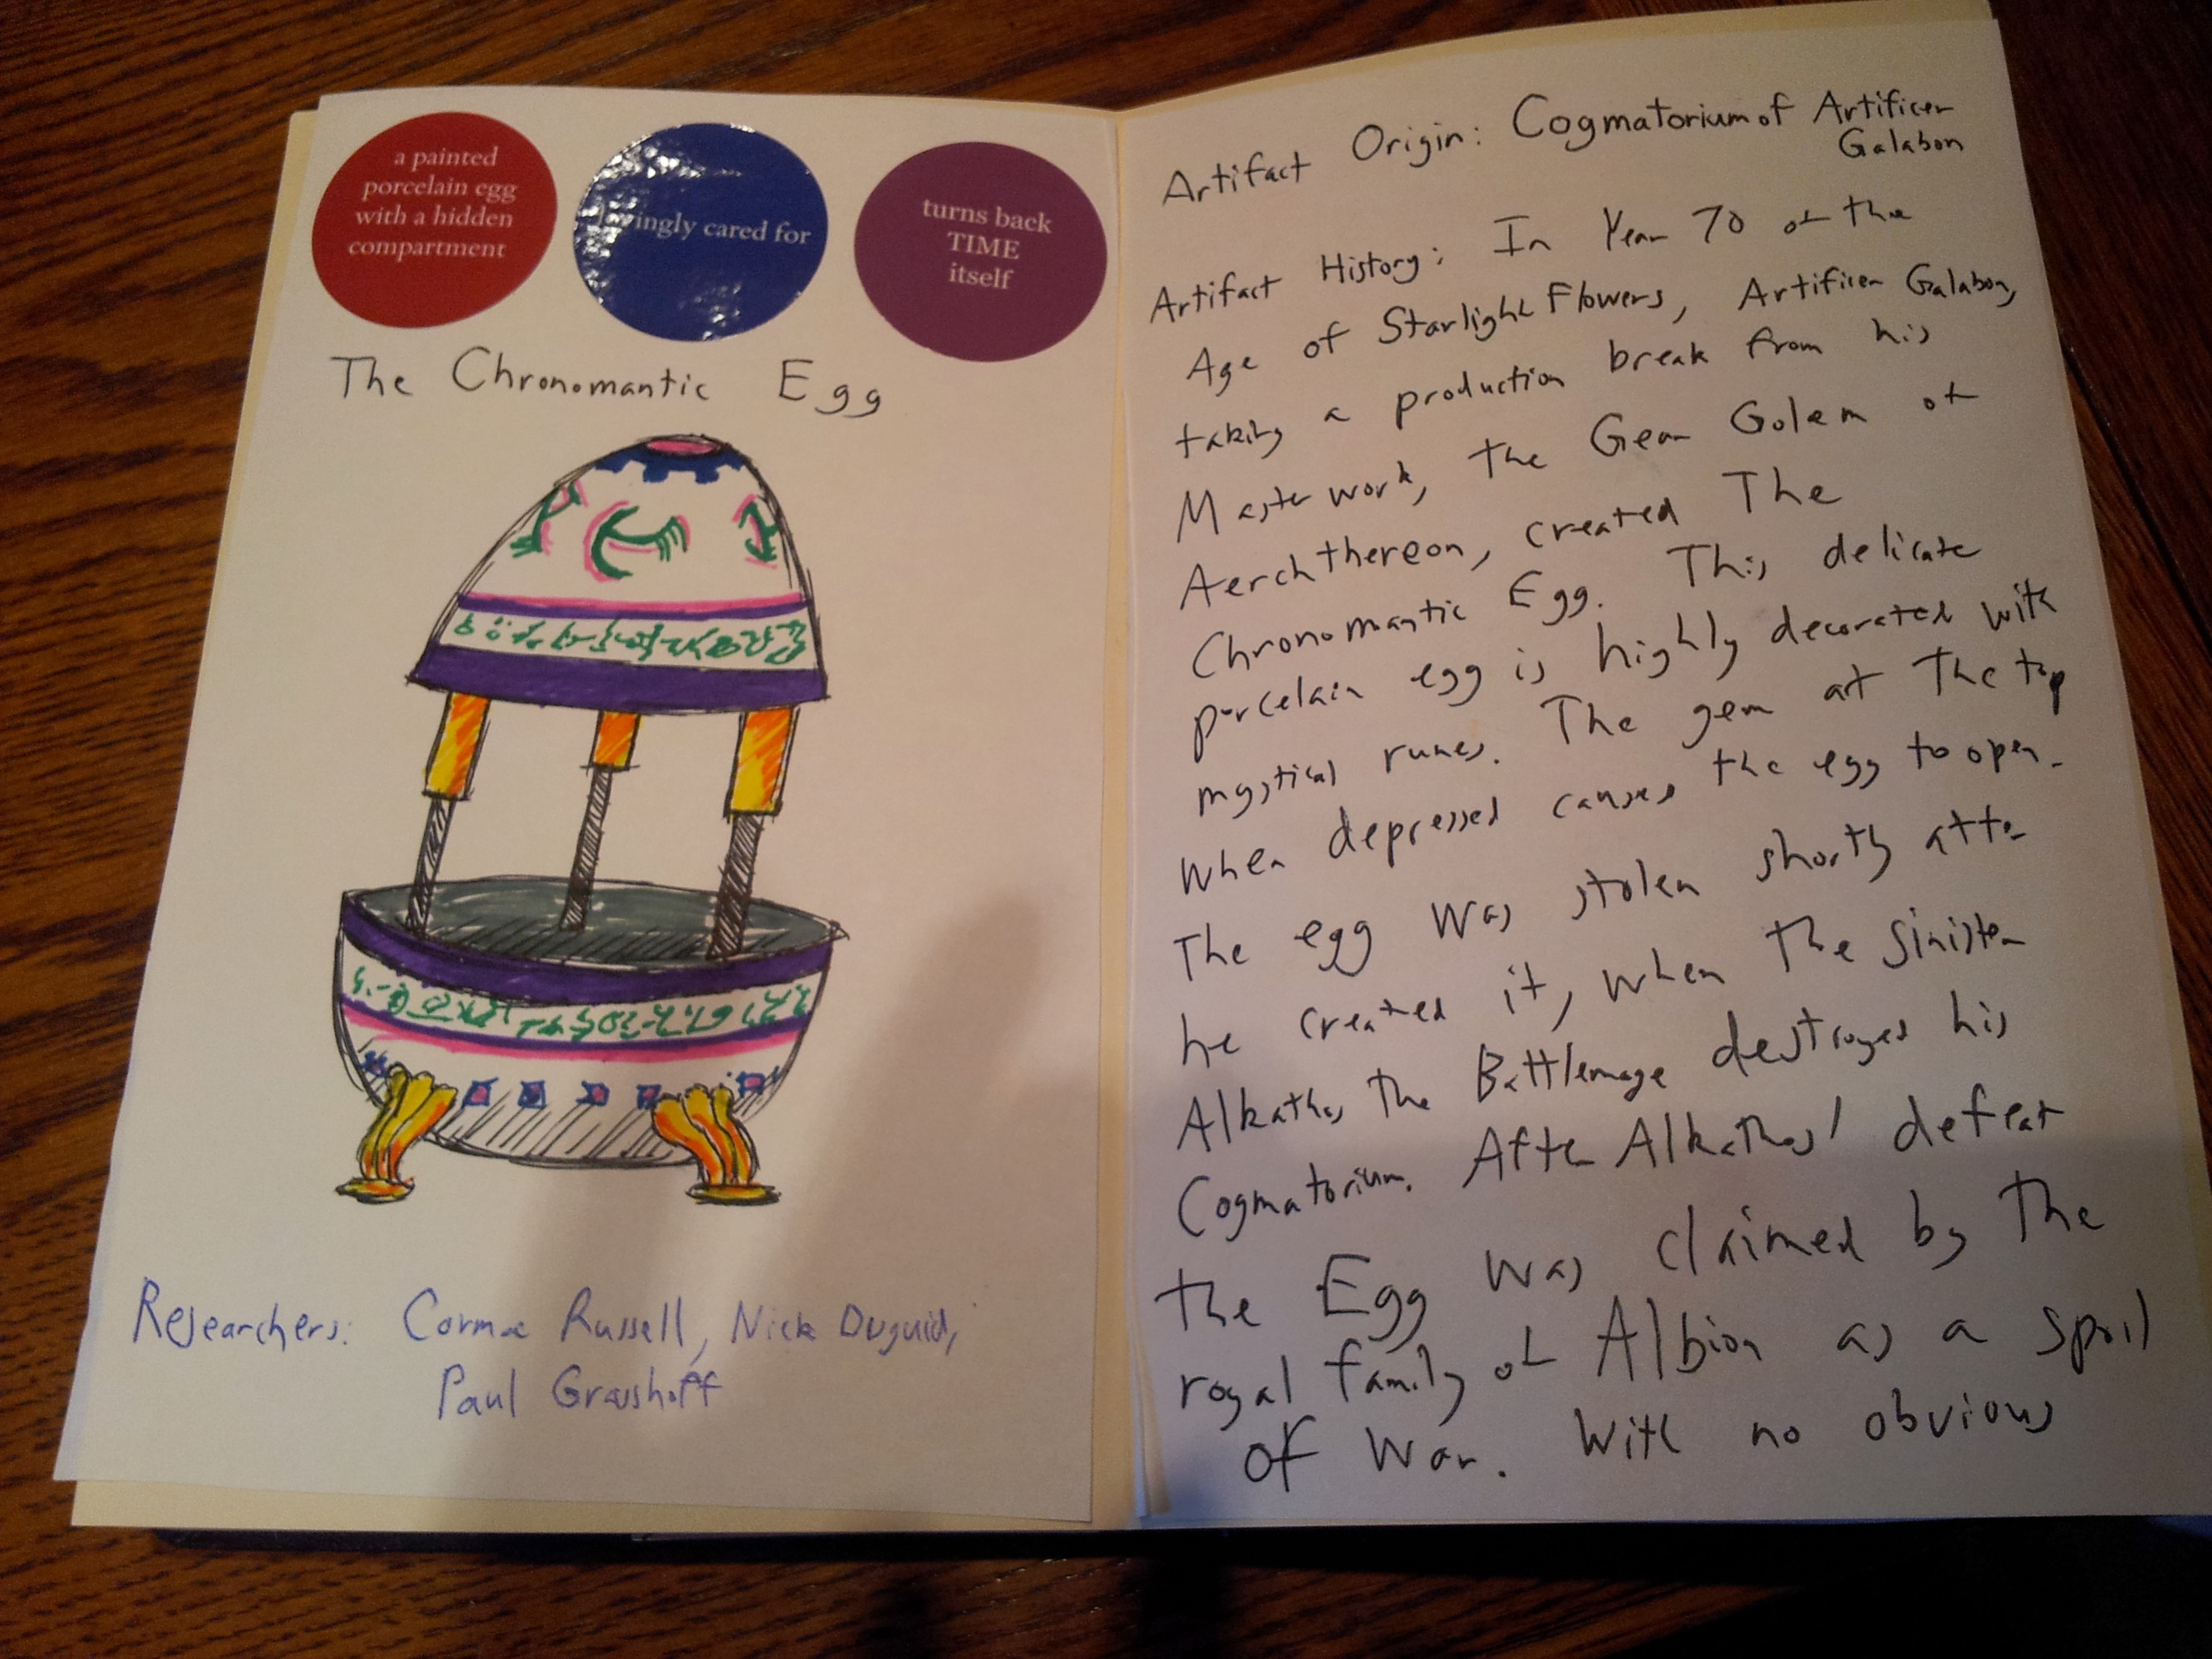 a painted
porcelain egg
with a hidden
compartment
lovingly cared for
turns back
TIME
itself
The Chronomantic Egg
Researchers: Cormac Russell, Nick Duguid,
Paul Grasshoff
Artifact Origin: Cogmatorium of Artificer
Galabon
Artifact History: In Year 70 of the
Age of Starlight Flowers, Artificer Galabon,
taking a production break from his
Masterwork, the Gear Golem of
Aerchthereon, created The
Chronomantic Egg. This delicate
porcelain egg is highly decorated with
mystical runes. The gem at the top
when depressed causes the egg to open.
The egg was stolen shortly after
he created it, when the sinister
Alkathos the Battlemage destroyed his
Cogmatorium. After Alkathos' defeat
the Egg was claimed by the
royal family of Albion as a spoil
of war. With no obvious